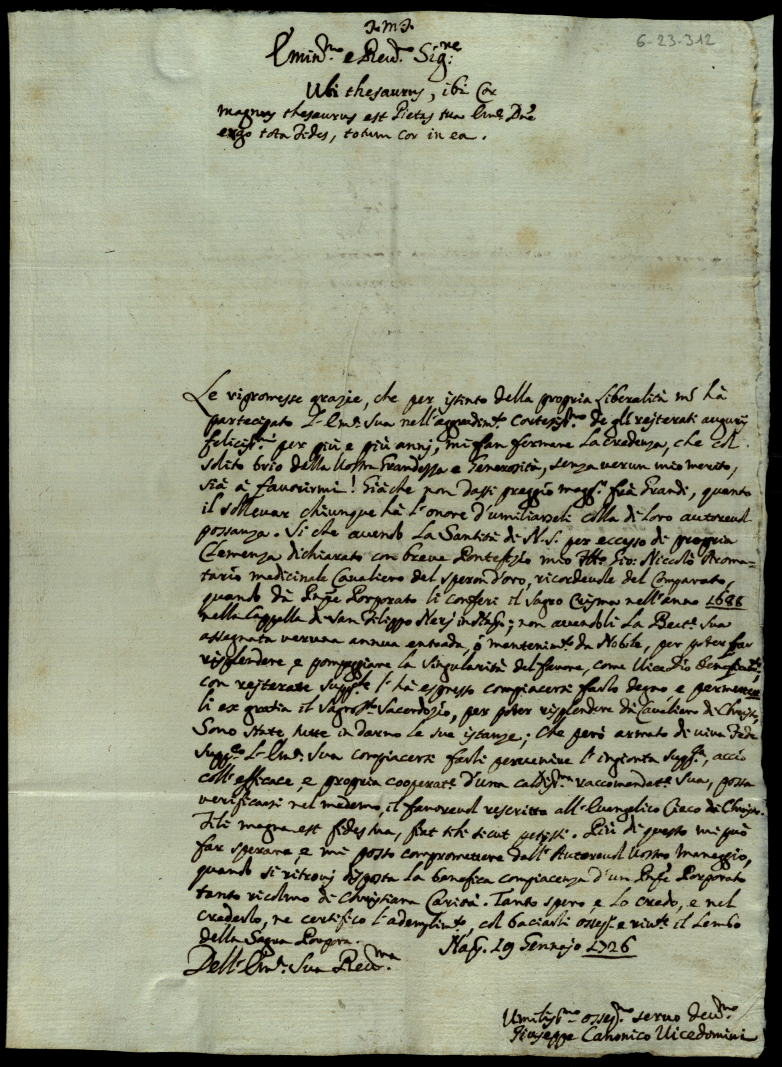 J.M.J.
6-23-312
Emin.mo e Rev.mo Sig.re
Ubi thesaurus, ibi Cor
magnus thesaurus est Pietas tua Em.e Dne
ergo tota Fides, totum cor in ea.
Le ripromesse grazie, che per istinto della propria Liberalità m'hà
partecipato L'Em.a Sua nell'aggradim.to cortesiss.mo de gli rejterati augurij
feliciss.mi per più e più anni, mi fan fermare la credenza, che col
solito brio della Vostra Grandezza e Generosità, senza verun mio merito,
sia à favorirmi! Giàche non dassi preggio magg.r frà Grandi, quanto
il sollevar chiunque hà l'onore d'umiliarseli colla di loro autorevol
possanza. Si che avendo La Santità di N.S. per eccesso di propria
Clemenza dichiarato con breve Pontefizio mio Fr̃te Gio: Niccolò Aroma=
tario medicinale Cavaliero del speron d'oro, ricordevole del Comparato,
quando dà Pñpe Porporato li conferì il Sagro Crisma nell'anno 1688
nella Cappella di San Filippo Nerj ; non avendoli La Beat.e Sua
assegnata veruna annua entrada, ò mantenim.to da Nobile, per poter far
risplendere, e pompeggiare la singularità del favore, come Vice Dio
con rejterate supp.che l'hà espresso compiacersi farlo degno e
li ex gratia il Sagros.to Sacerdozio, per poter risplendere dà Cavaliero di Christo,
Sono state tutte in darno le sue istanze; che però armato di viva Fede
supp.co L'Em.a Sua compiacersi farli pervenire l'ingionta supp.ca, acciò
coll'efficace, e propria cooperat.e d'una caldiss.ma raccomandat.e Sua, possa
verificarsi nel mademo, il favorevol rescritto all'Evangelico Cieco di Christo.
Fili magna est fides tua, fiat tibi sicut petijsti. Più di questo mi può
far sperare, e mi posso compromettere dall'Autorevol Vostro maneggio,
quando si ritrovi disposta la benefica compiacenza d'un Pñpe Porporato
tanto ricolmo di Christiana Carità. Tanto spero e Lo credo, e nel
crederlo, ne certifico l'adempim.to, col baciarli osseq.e e riv.te il Lembo
della Sagra Porpora. Nap. 19 Gennajo 1726
Dell'Em.a Sua Rev.ma
Umiliss.mo osseq.mo servo dev.mo
Giuseppe Canonico Vicedomini